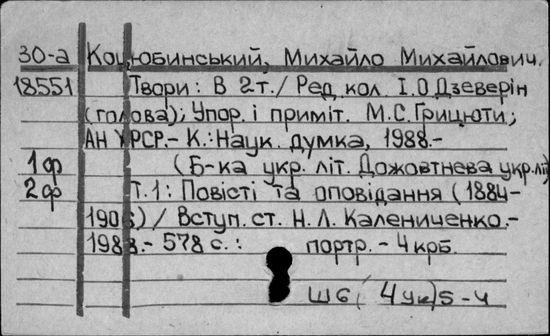 30-а Коцюбинський, Михайло Михайлович.
18551 Твори: В 2 т. / Ред. кол. І. О Дзеверін
(голова); Упор. і приміт. М. С. Грицюти;
АН УРСР. - К.: Наук. думка, 1988.-
1 ф (Б-ка укр. літ. Дожовтнева укр. літ)
2 ф Т. 1: Повісті та оповідання (1884-
1906) / Вступ. ст. Н. Л. Калениченко.-
1988.- 578 с.: портр. - 4 крб.
Ш6(4Ук)5-4